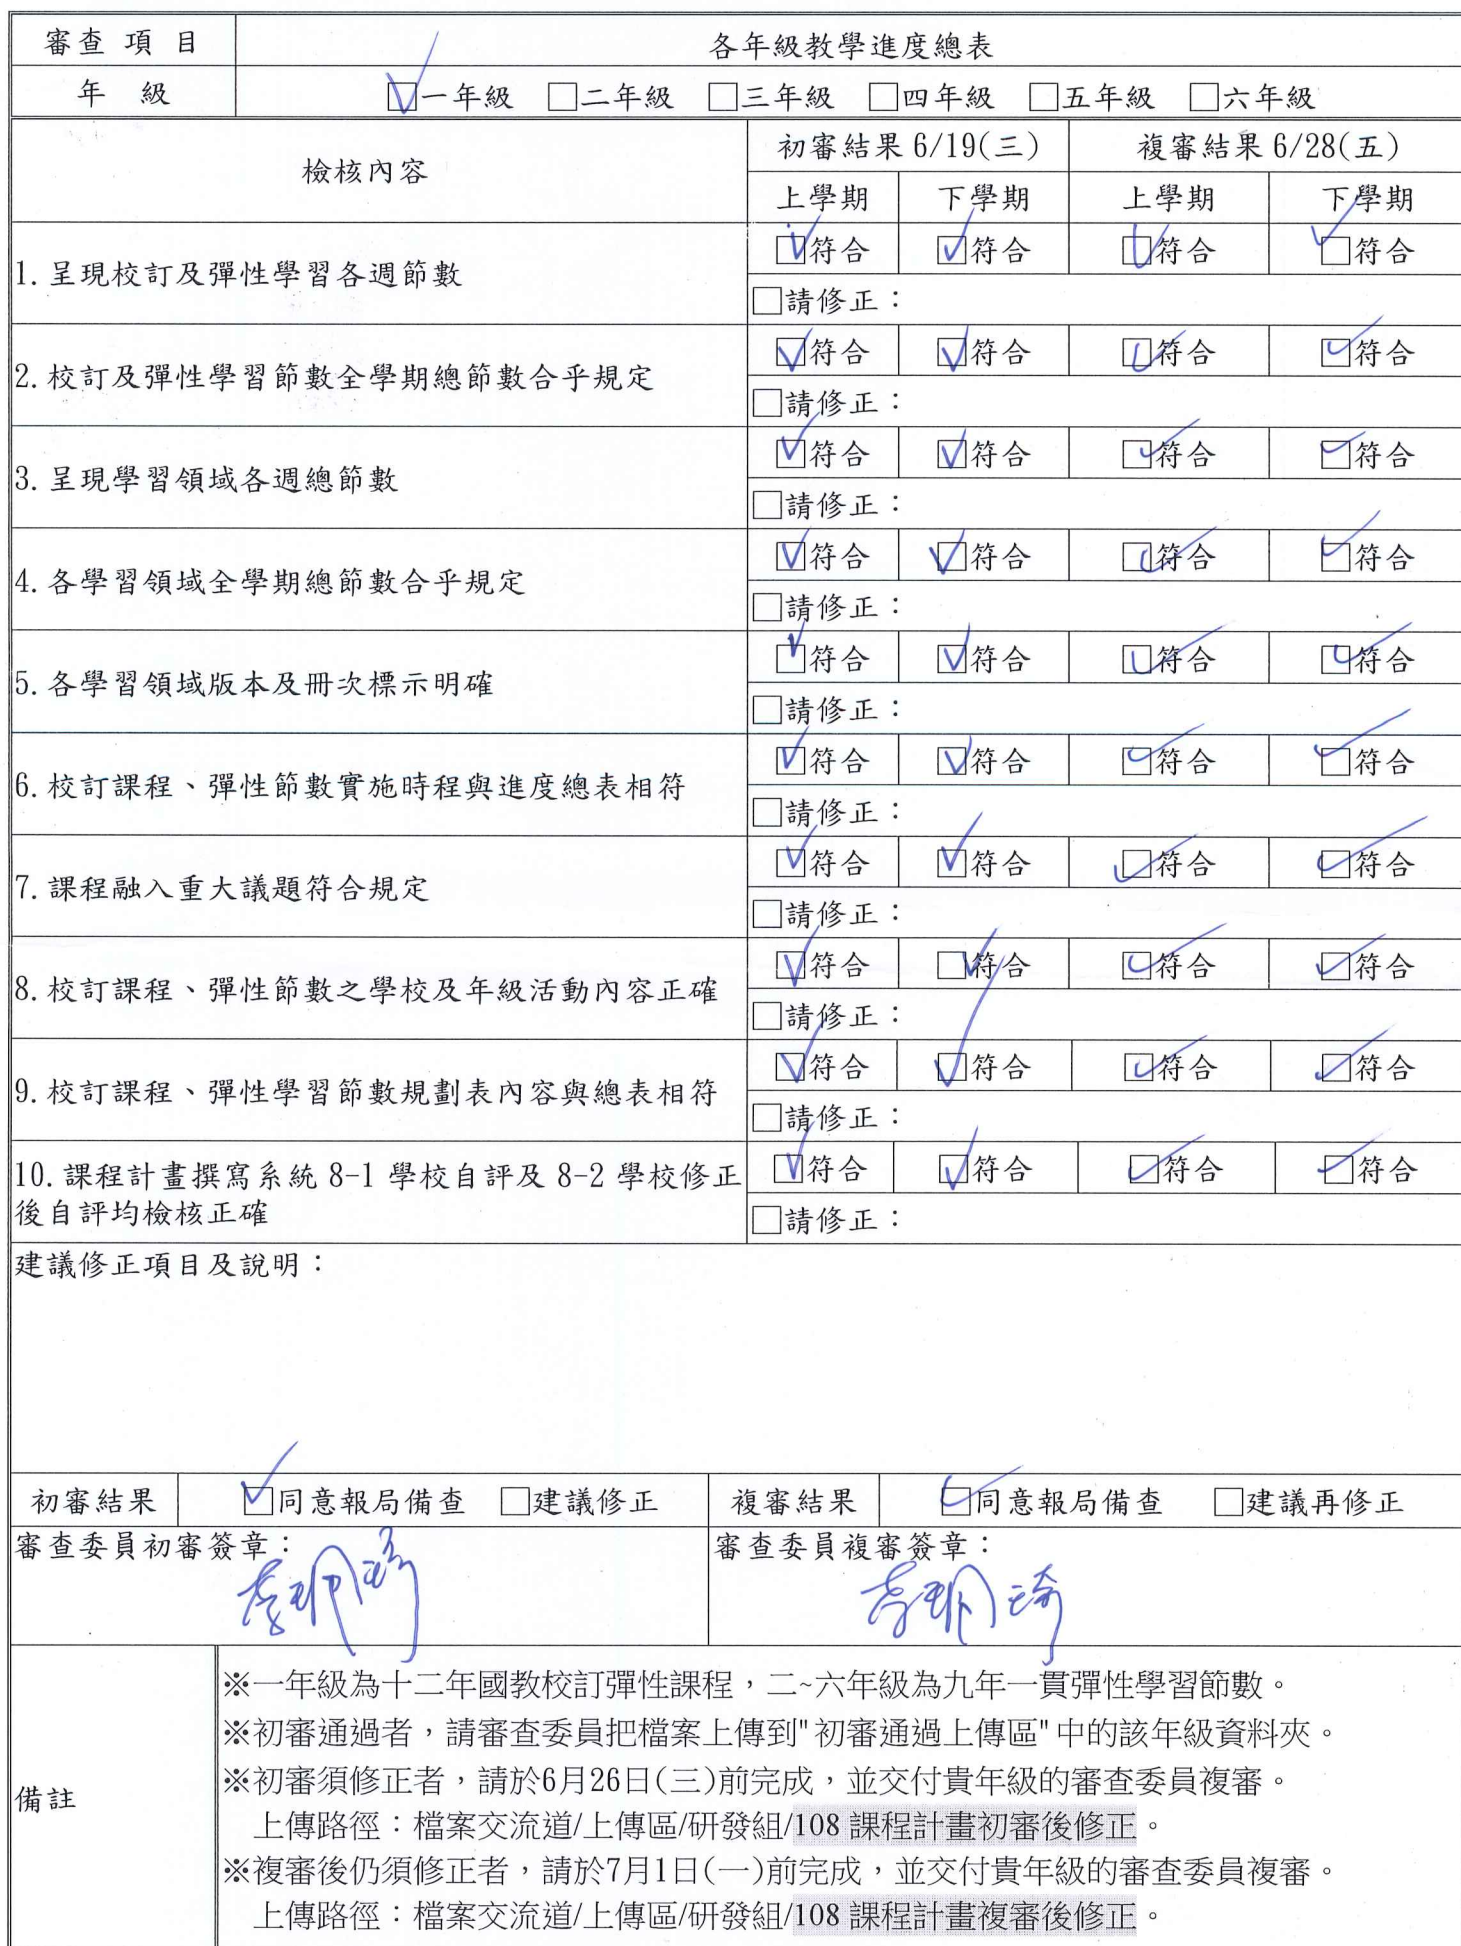 審查 項 目 各年級教學進度總表
年 級 ☑一年級 □二年級 □三年級 □四年級 □五年級 □六年級
檢核內容 初審結果 6/19(三) 複審結果 6/28(五)
上學期 下學期 上學期 下學期
1.呈現校訂及彈性學習各週節數 ☑符合 ☑符合 ☑符合 ☑符合
□請修正：
2.校訂及彈性學習節數全學期總節數合乎規定 ☑符合 ☑符合 ☑符合 ☑符合
□請修正：
3.呈現學習領域各週總節數 ☑符合 ☑符合 ☑符合 ☑符合
□請修正：
4.各學習領域全學期總節數合乎規定 ☑符合 ☑符合 ☑符合 ☑符合
□請修正：
5.各學習領域版本及冊次標示明確 ☑符合 ☑符合 ☑符合 ☑符合
□請修正：
6.校訂課程、彈性節數實施時程與進度總表相符 ☑符合 ☑符合 ☑符合 ☑符合
□請修正：
7.課程融入重大議題符合規定 ☑符合 ☑符合 ☑符合 ☑符合
□請修正：
8.校訂課程、彈性節數之學校及年級活動內容正確 ☑符合 ☑符合 ☑符合 ☑符合
□請修正：
9.校訂課程、彈性學習節數規劃表內容與總表相符 ☑符合 ☑符合 ☑符合 ☑符合
□請修正：
10.課程計畫撰寫系統 8-1 學校自評及 8-2 學校修正
後自評均檢核正確 ☑符合 ☑符合 ☑符合 ☑符合
□請修正：
建議修正項目及說明：
初審結果 ☑同意報局備查 □建議修正 複審結果 ☑同意報局備查 □建議再修正
審查委員初審簽章： 審查委員複審簽章：
備註
※一年級為十二年國教校訂彈性課程，二~六年級為九年一貫彈性學習節數。
※初審通過者，請審查委員把檔案上傳到"初審通過上傳區"中的該年級資料夾。
※初審須修正者，請於6月26日(三)前完成，並交付貴年級的審查委員複審。
上傳路徑：檔案交流道/上傳區/研發組/108 課程計畫初審後修正。
※複審後仍須修正者，請於7月1日(一)前完成，並交付貴年級的審查委員複審。
上傳路徑：檔案交流道/上傳區/研發組/108 課程計畫複審後修正。